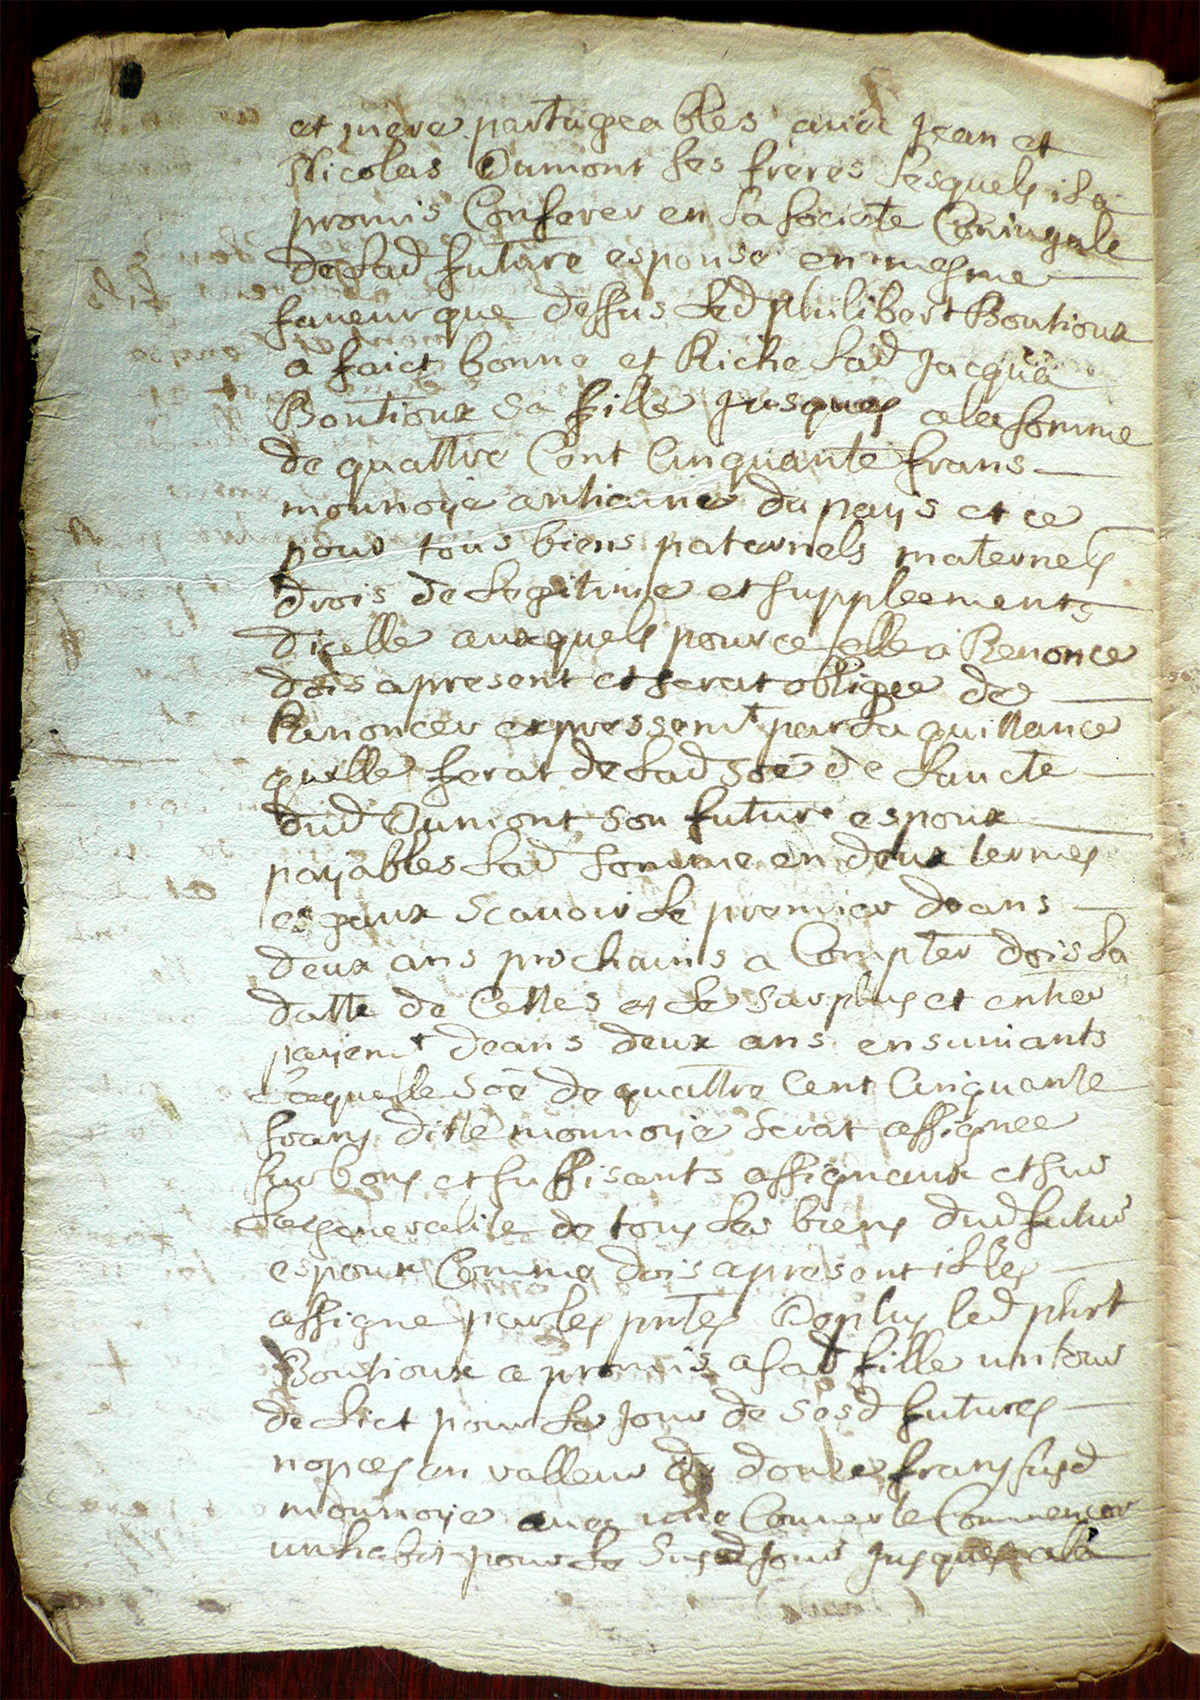 et mere partageables avec Jean et
Nicolas Dumont ses freres lesquels il a
promis Conferer en la societe Coniugale
de lad future espouse en mesme
faueur que dessus led philibert Boutioux
a faict bonne et Riche lad Jacqua
Boutioux sa fille Jusques a la somme
de quattre Cent Cinquante frans
monnoye antienne du pays et ce
pour tous biens paternels maternels
drois de legitime et suppleements
dicelle auxquels pource elle a Renonce
dois apresent et serat obligee de
Renoncer expressemt par la quittance
quelle ferat de lad soe de laucte
dud Dumont son futur espoux
payables lad somme en deux termes
esgaux scauoir le premier deans
deux ans prochains a Compter dois la
datte de Cettes et le surplus et entier
payemt deans deux ans ensuiuants
Laquelle soe de quattre Cent Cinquante
frans ditte monnoye serat assignee
sur bons et suffisants assignaux et sur
la generalite de tous les biens dud futur
espoux Comme dois apresent il les
assigne par les pntes Deplus led phirt
Boutioux a promis a sad fille un tour
de lict pour le Jour de sesd futures
nopces en valleur de douze frans susd
monnoye auec une Couuerte
un habit pour le susd Jour Jusques a la